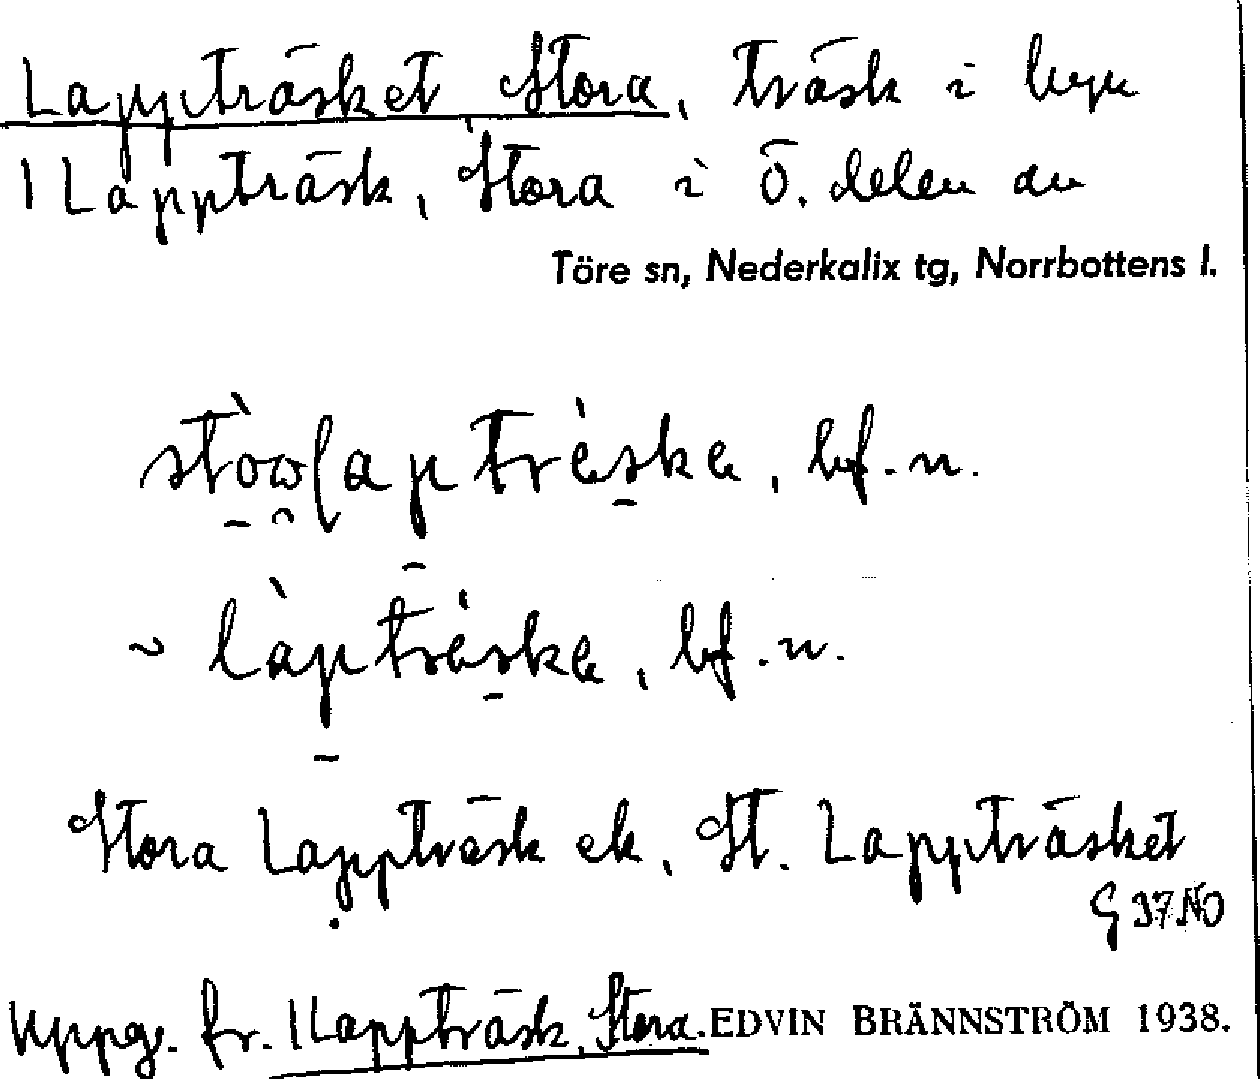 Lappträsket, Stora, träsk i byn
1 Lappträsk, Stora i ö. delen av
Töre sn, Nederkalix tg, Norrbottens l.
stòwlaptrèske, bf. n.
~ làptrèske, bf. n.
Stora Lappträsk ek, St. Lappträsket
G 37 NO
Uppg. fr. 1 Lappträsk, Stora. EDVIN BRÄNNSTRÖM 1938.